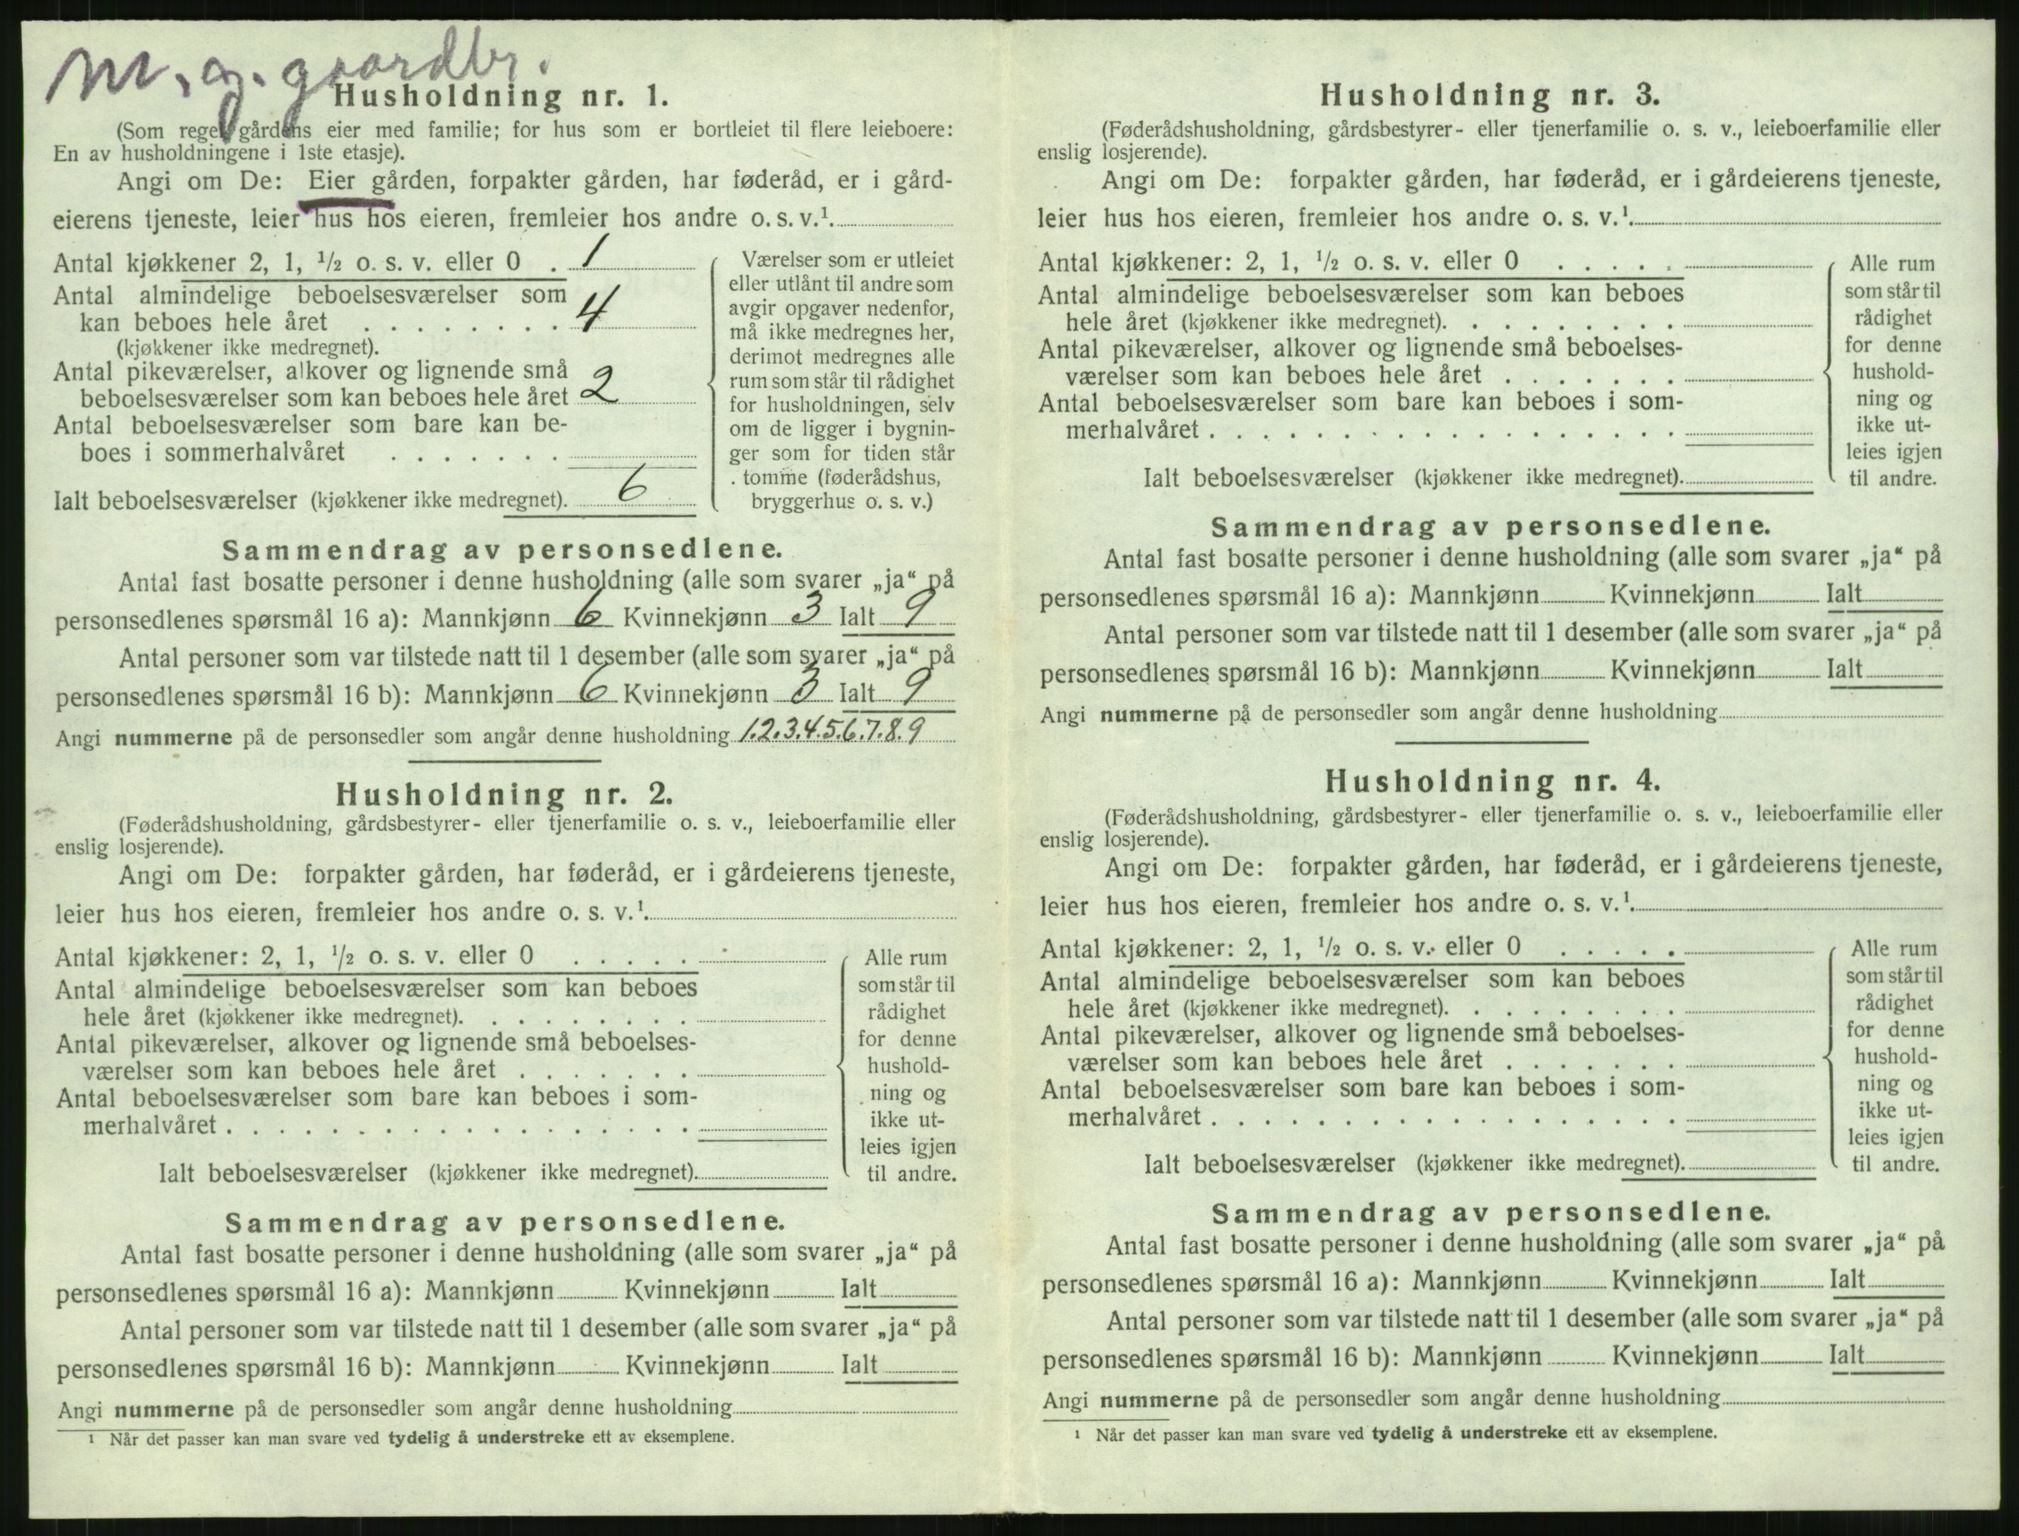 m. g. gaardbr.
Husholdning nr. 1.
(Som regel gårdens eier med familie; for hus som er bortleiet til flere leieboere:
En av husholdningene i 1ste etasje).
Angi om De: Eier gården, forpakter gården, har føderåd, er i gård-
eierens tjeneste, leier hus hos eieren, fremleier hos andre o. s. v.¹
Antal kjøkkener 2, 1, ½ o. s. v. eller 0 . 1
Antal almindelige beboelsesværelser som
kan beboes hele året . . . . . . . . 4
(kjøkkener ikke medregnet).
Antal pikeværelser, alkover og lignende små
beboelsesværelser som kan beboes hele året 2
Antal beboelsesværelser som bare kan be-
boes i sommerhalvåret . . . . . . .
Ialt beboelsesværelser (kjøkkener ikke medregnet). 6
Værelser som er utleiet
eller utlånt til andre som
avgir opgaver nedenfor,
må ikke medregnes her,
derimot medregnes alle
rum som står til rådighet
for husholdningen, selv
om de ligger i bygnin-
ger som for tiden står
tomme (føderådshus,
bryggerhus o. s. v.)
Sammendrag av personsedlene.
Antal fast bosatte personer i denne husholdning (alle som svarer „ja“ på
personsedlenes spørsmål 16 a): Mannkjønn 6 Kvinnekjønn 3 Ialt 9
Antal personer som var tilstede natt til 1 desember (alle som svarer „ja“ på
personsedlenes spørsmål 16 b): Mannkjønn 6 Kvinnekjønn 3 Ialt 9
Angi nummerne på de personsedler som angår denne husholdning 1.2.3.4.5.6.7.8.9
Husholdning nr. 2.
(Føderådshusholdning, gårdsbestyrer- eller tjenerfamilie o. s. v., leieboerfamilie eller
enslig losjerende).
Angi om De: forpakter gården, har føderåd, er i gårdeierens tjeneste,
leier hus hos eieren, fremleier hos andre o. s. v.¹
Antal kjøkkener: 2, 1, ½ o. s. v. eller 0 . . . . .
Antal almindelige beboelsesværelser som kan beboes
hele året (kjøkkener ikke medregnet). . . . . . . . .
Antal pikeværelser, alkover og lignende små beboelses-
værelser som kan beboes hele året . . . . . . .
Antal beboelsesværelser som bare kan beboes i som-
merhalvåret . . . . . . . . . . . . . . . . . .
Ialt beboelsesværelser (kjøkkener ikke medregnet).
Alle rum
som står til
rådighet
for denne
hushold-
ning og
ikke ut-
leies igjen
til andre.
Sammendrag av personsedlene.
Antal fast bosatte personer i denne husholdning (alle som svarer „ja“ på
personsedlenes spørsmål 16 a): Mannkjønn Kvinnekjønn Ialt
Antal personer som var tilstede natt til 1 desember (alle som svarer „ja“ på
personsedlenes spørsmål 16 b): Mannkjønn Kvinnekjønn Ialt
Angi nummerne på de personsedler som angår denne husholdning
¹ Når det passer kan man svare ved tydelig å understreke ett av eksemplene.
Husholdning nr. 3.
(Føderådshusholdning, gårdsbestyrer- eller tjenerfamilie o. s. v., leieboerfamilie eller
enslig losjerende).
Angi om De: forpakter gården, har føderåd, er i gårdeierens tjeneste,
leier hus hos eieren, fremleier hos andre o. s. v.¹
Antal kjøkkener: 2, 1, ½ o. s. v. eller 0 . . . . .
Antal almindelige beboelsesværelser som kan beboes
hele året (kjøkkener ikke medregnet). . . . . . . . .
Antal pikeværelser, alkover og lignende små beboelses-
værelser som kan beboes hele året . . . . . . .
Antal beboelsesværelser som bare kan beboes i som-
merhalvåret . . . . . . . . . . . . . . . . . .
Ialt beboelsesværelser (kjøkkener ikke medregnet).
Alle rum
som står til
rådighet
for denne
hushold-
ning og
ikke ut-
leies igjen
til andre.
Sammendrag av personsedlene.
Antal fast bosatte personer i denne husholdning (alle som svarer „ja“ på
personsedlenes spørsmål 16 a): Mannkjønn Kvinnekjønn Ialt
Antal personer som var tilstede natt til 1 desember (alle som svarer „ja“ på
personsedlenes spørsmål 16 b): Mannkjønn Kvinnekjønn Ialt
Angi nummerne på de personsedler som angår denne husholdning
Husholdning nr. 4.
(Føderådshusholdning, gårdsbestyrer- eller tjenerfamilie o. s. v., leieboerfamilie eller
enslig losjerende).
Angi om De: forpakter gården, har føderåd, er i gårdeierens tjeneste,
leier hus hos eieren, fremleier hos andre o. s. v.¹
Antal kjøkkener: 2, 1, ½ o. s. v. eller 0 . . . . .
Antal almindelige beboelsesværelser som kan beboes
hele året (kjøkkener ikke medregnet). . . . . . . . .
Antal pikeværelser, alkover og lignende små beboelses-
værelser som kan beboes hele året . . . . . . .
Antal beboelsesværelser som bare kan beboes i som-
merhalvåret . . . . . . . . . . . . . . . . . .
Ialt beboelsesværelser (kjøkkener ikke medregnet).
Alle rum
som står til
rådighet
for denne
hushold-
ning og
ikke ut-
leies igjen
til andre.
Sammendrag av personsedlene.
Antal fast bosatte personer i denne husholdning (alle som svarer „ja“ på
personsedlenes spørsmål 16 a): Mannkjønn Kvinnekjønn Ialt
Antal personer som var tilstede natt til 1 desember (alle som svarer „ja“ på
personsedlenes spørsmål 16 b): Mannkjønn Kvinnekjønn Ialt
Angi nummerne på de personsedler som angår denne husholdning
¹ Når det passer kan man svare ved tydelig å understreke ett av eksemplene.